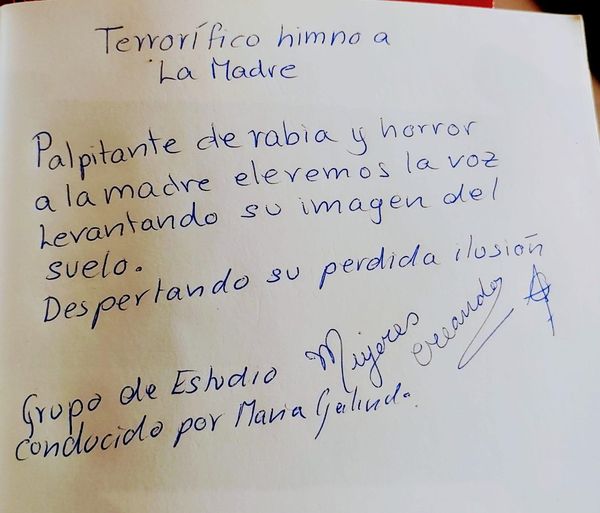 Terrorífico himno a
La Madre
Palpitante de rabia y horror
a la madre elevemos la voz
Levantando su imagen del
suelo.
Despertando su perdida ilusión
Grupo de Estudio Mujeres creando
conducido por Maria Galindo.